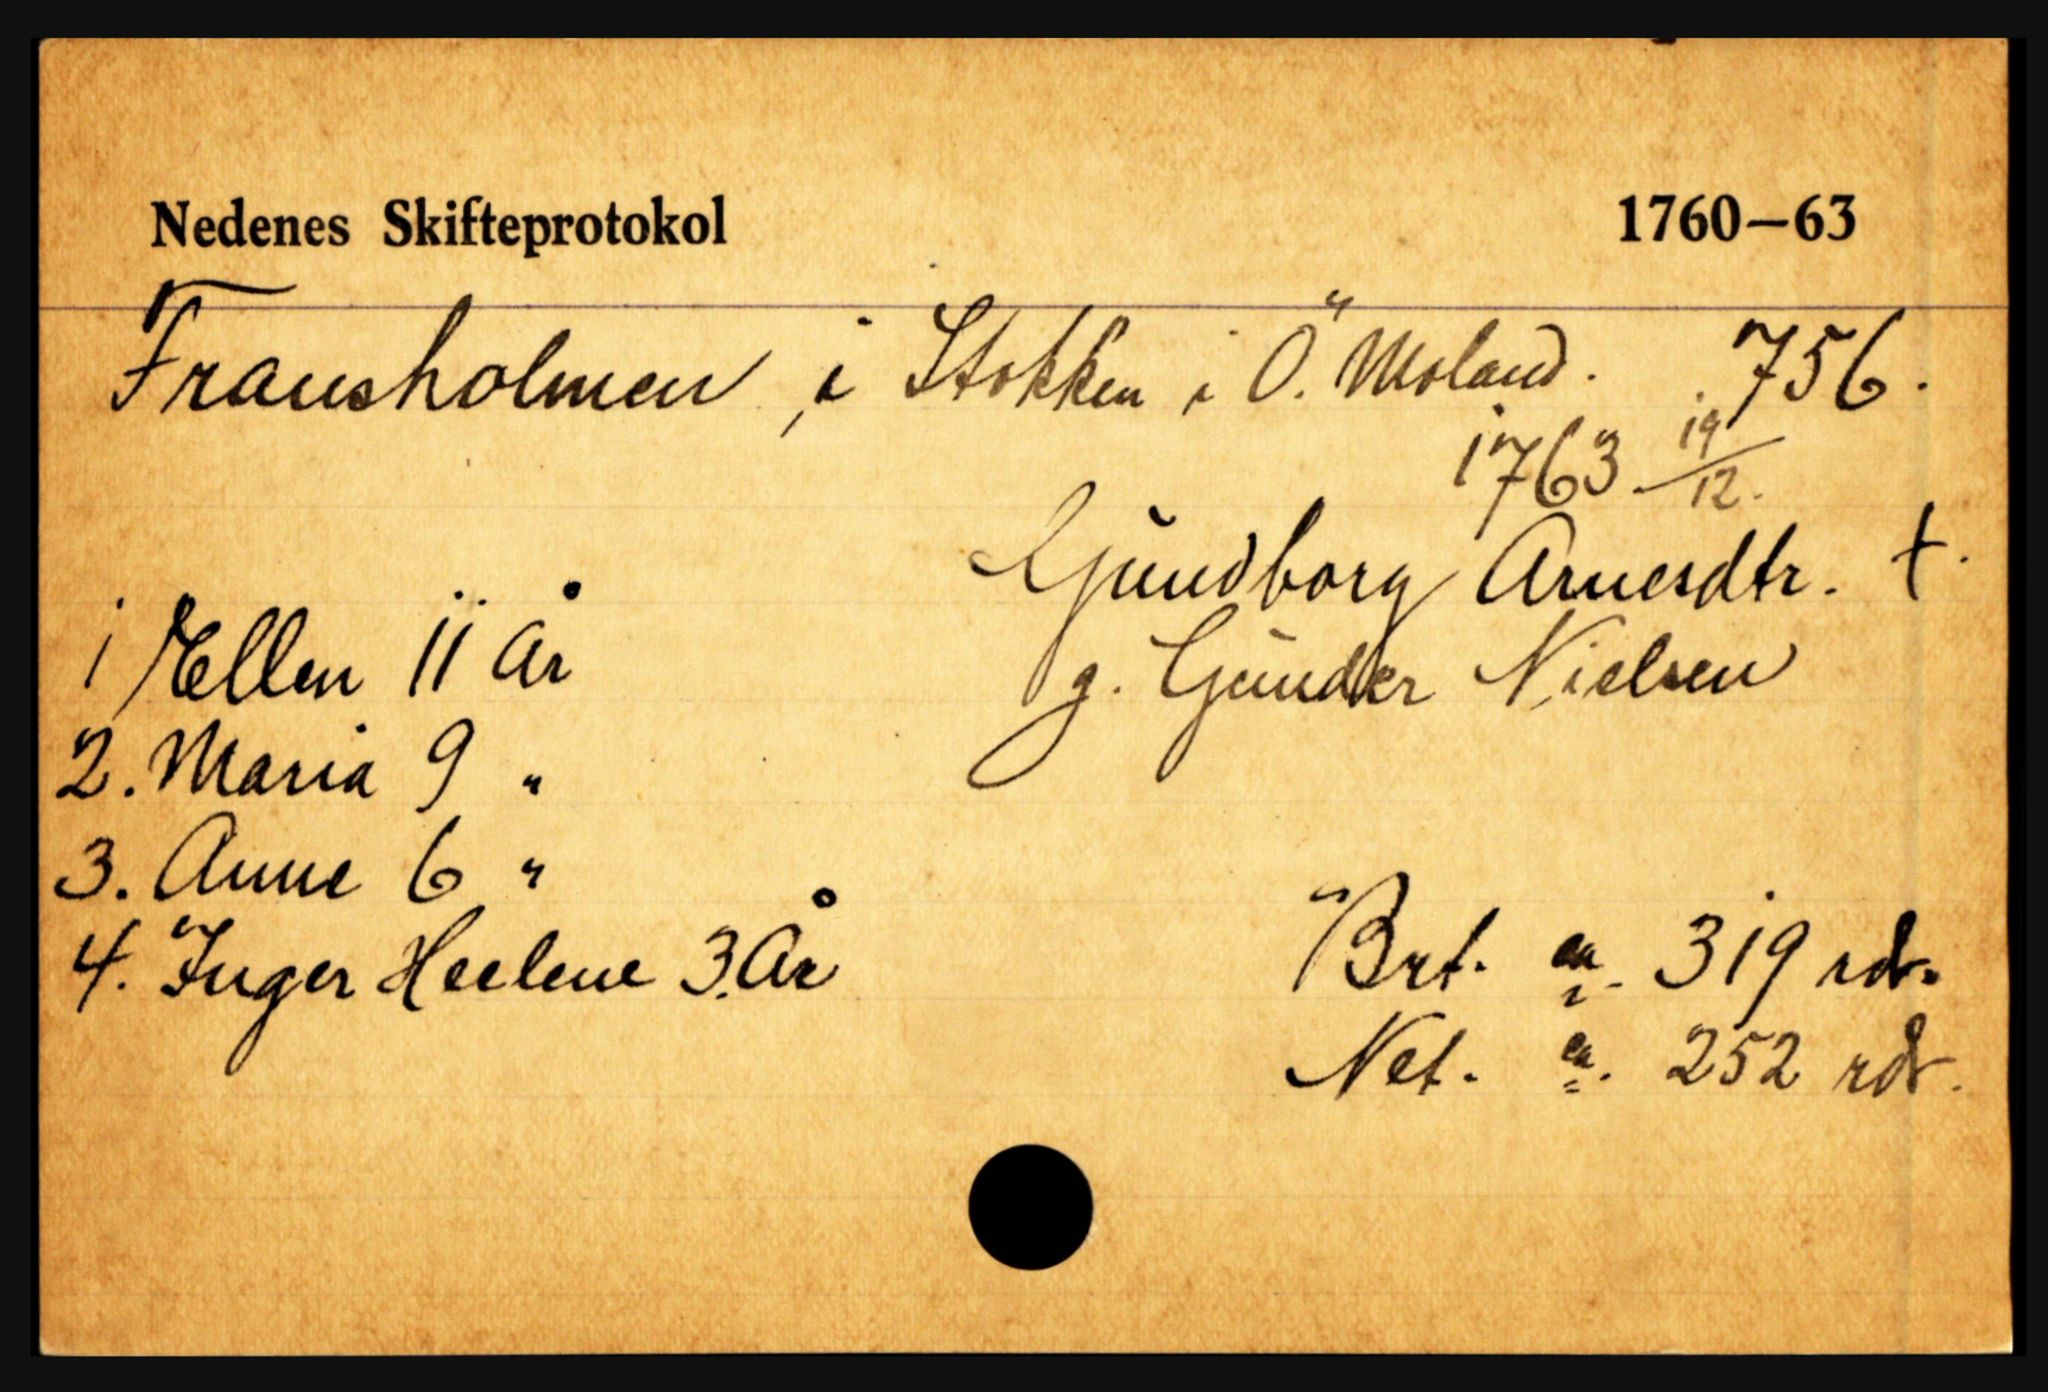 Nedenes Skifteprotokol 1760–63
Fransholmen, i Stokken i Ö. Moland. 756.
1763 19/12.
Gundborg Arnesdtr. †.
g. Gunder Nielsen
1 Ellen 11 År
2. Maria 9 "
3. Anne 6 "
4. Inger Heelene 3 År
Brt. ca. 319 rdr.
Net. ca. 252 rdr.